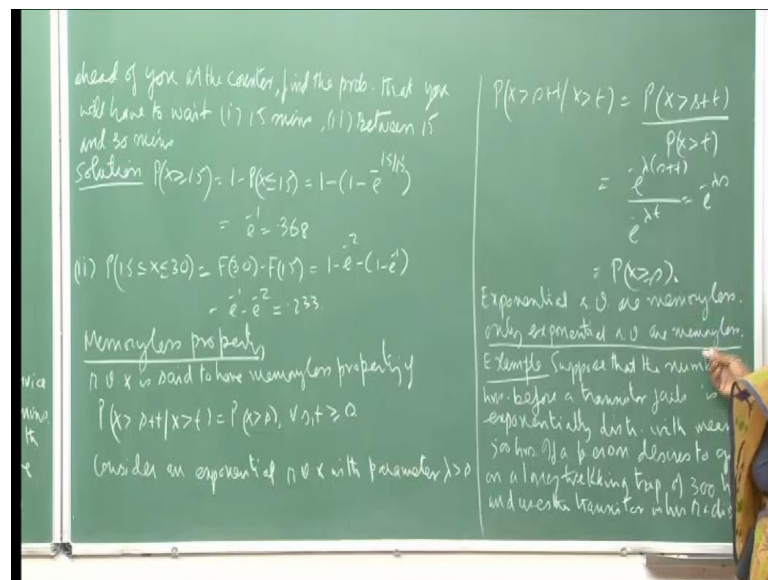 ahead of you at the counter, find the prob. that you
will have to wait (i) 15 mins, (ii) between 15
and 30 mins
Solution P(X≥15) = 1-P(X≤15) = 1-(1-e^{-15/15})
= e^{-1} = .368
(ii) P(15≤X≤30) = F(30)-F(15) = 1-e^{-2}-(1-e^{-1})
= e^{-1}-e^{-2} = .233
Memoryless property
r v X is said to have memoryless property if
P(X> s+t/X>t) = P(X>s), ∀ s,t ≥ 0
Consider an exponential r v X with parameter λ>0
P(X> s+t/X>t) = P(X>s+t)
P(X>t)
= e^{-λ(s+t)} = e^{-λs}
e^{-λt}
= P(X≥s).
Exponential r.v. are memoryless.
Only exponential r v are memoryless.
Example Suppose that the num
hrs. before a transistor fails is
exponentially distb. with mean
500 hrs. If a person desires to
on a long trekking trip of 300 h
and uses the transistor in his
vice
mins.
th